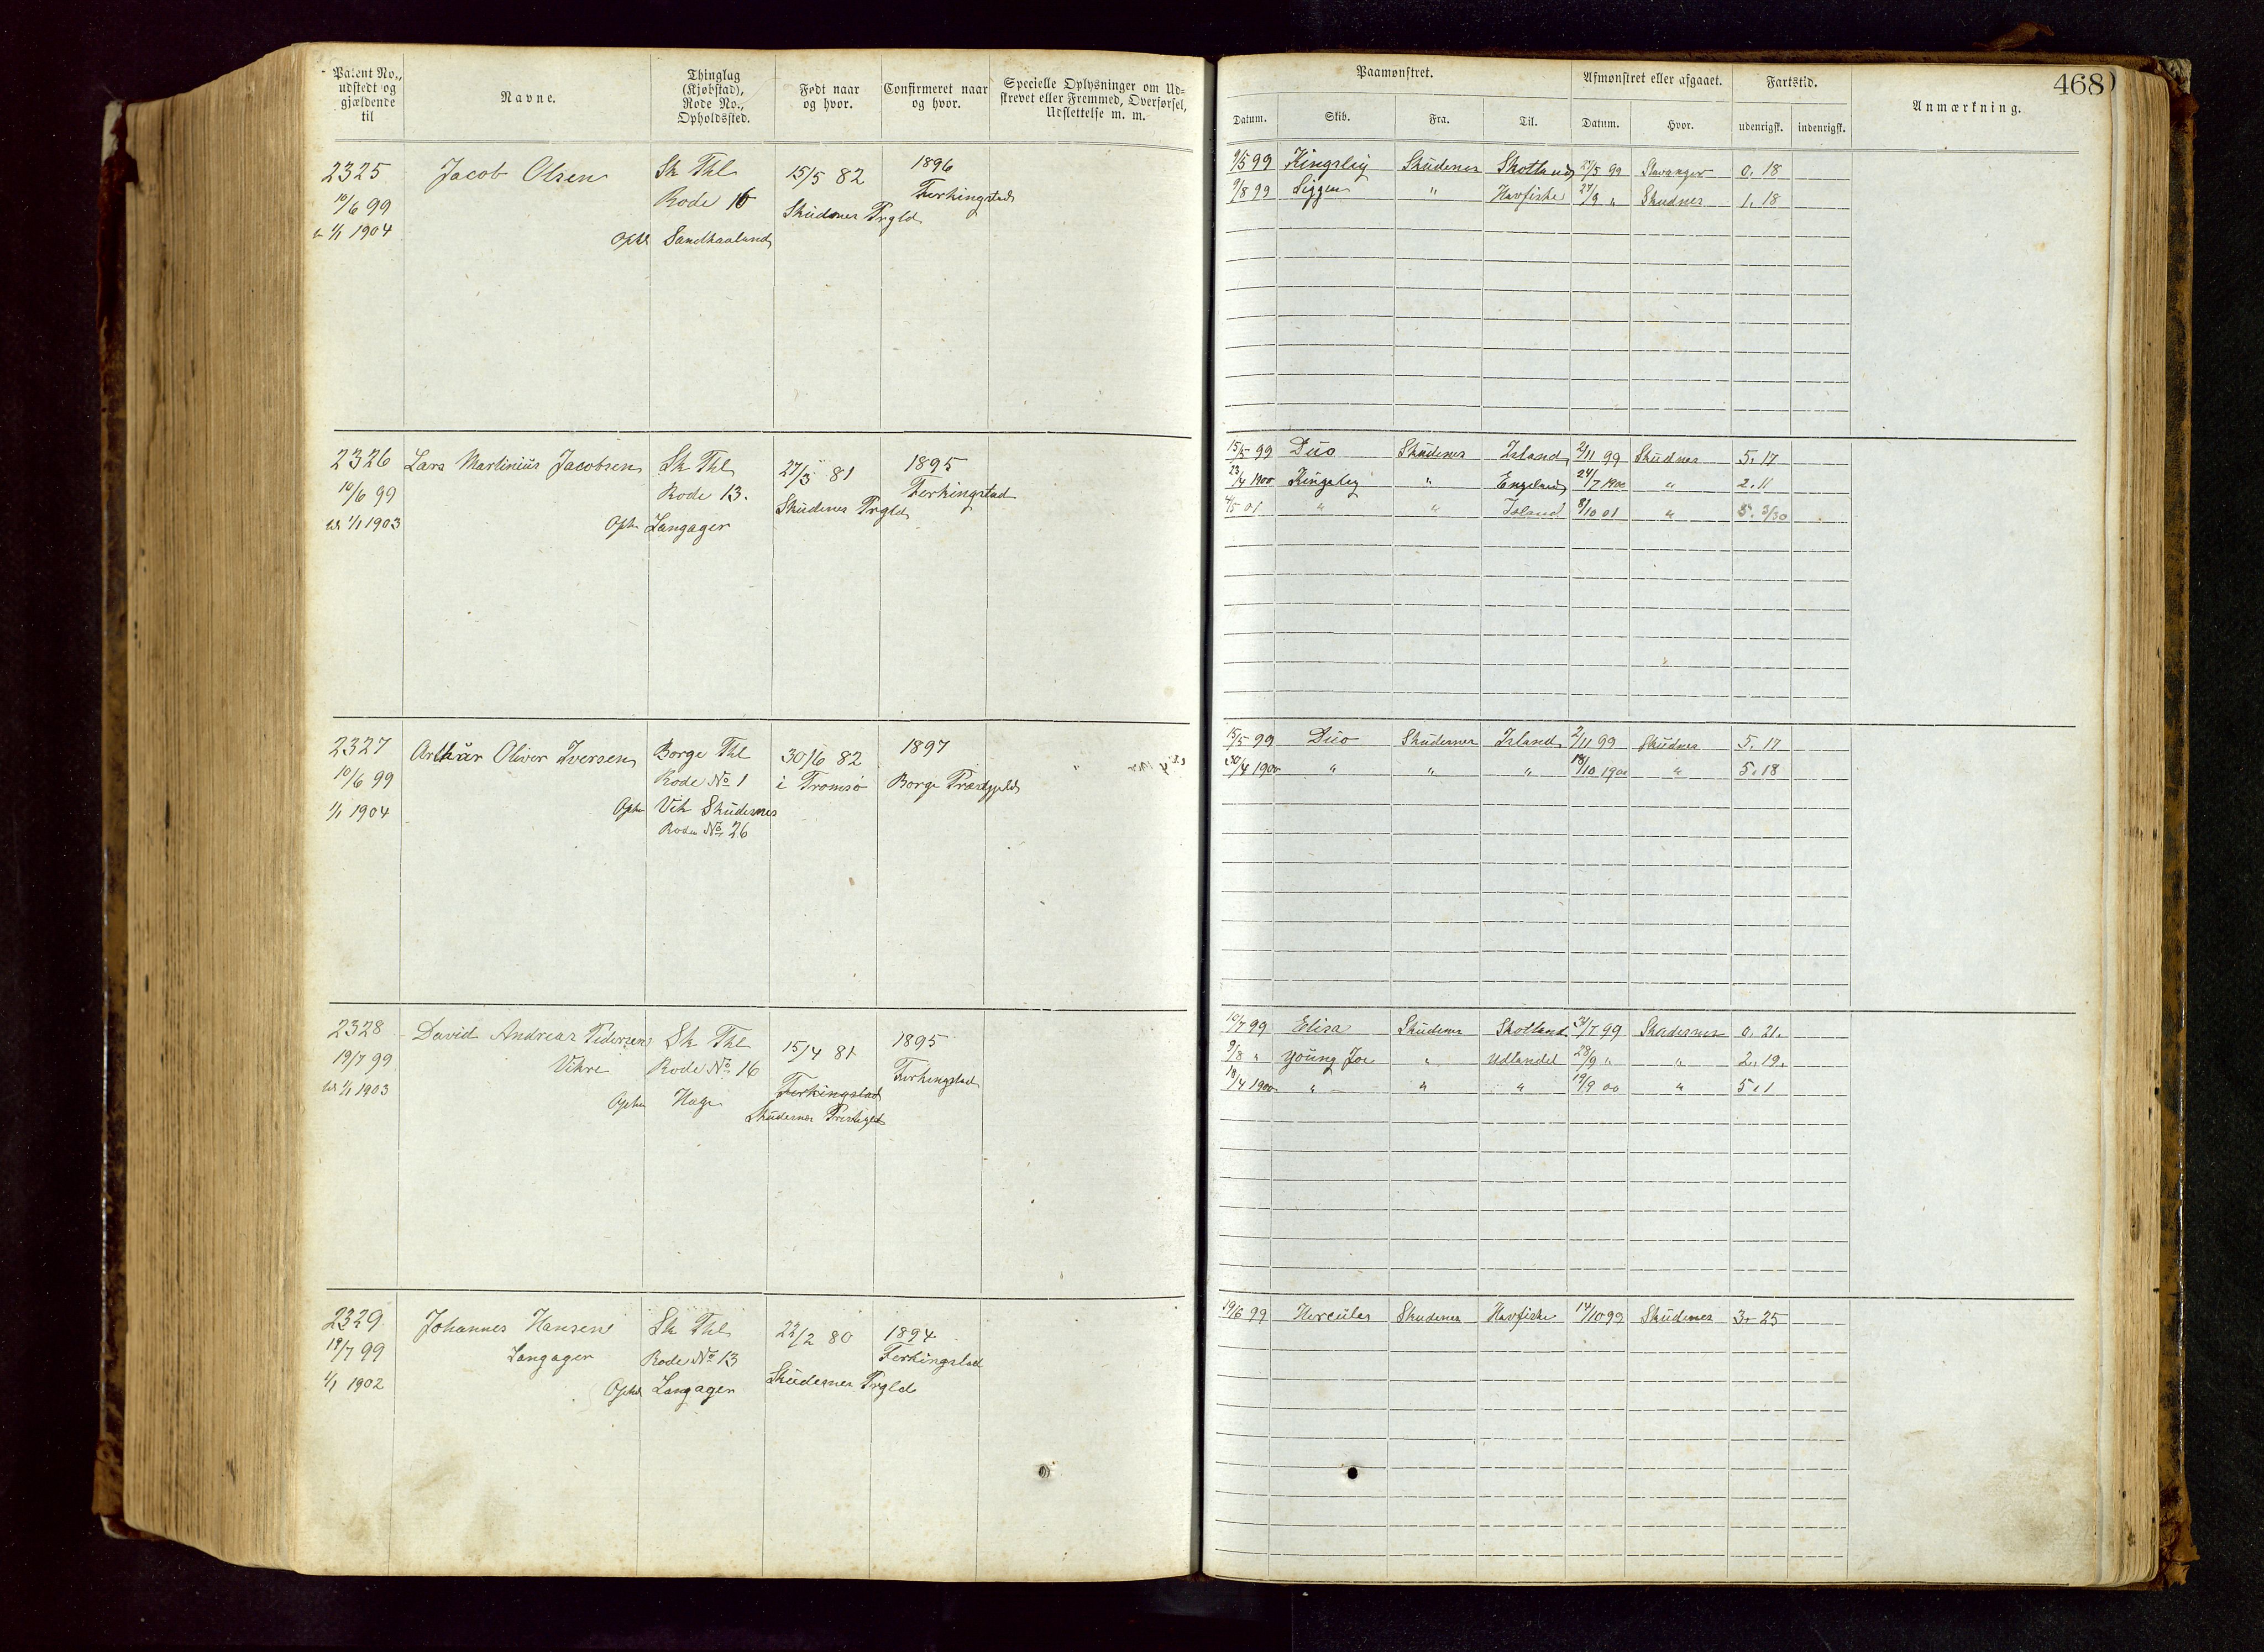 468
Patent No., udstedt og gjældende til
Navne.
Thinglag (Kjøbstad), Rode No., Opholdssted.
Født naar og hvor.
Confirmeret naar og hvor.
Specielle Oplysninger om Udskrevet eller Fremmed, Overførsel, Udslettelse m. m.
Paamønstret.
Afmønstret eller afgaaet.
Fartstid.
Anmærkning.
Datum. Skib. Fra. Til. Datum. Hvor. udenrigsk. indenrigsk.
2325 Jacob Olsen Sk Thl 15/5 82 1896
10/6 99 Rode 16 Skudenes Prgld Ferkingstad
1/1 1904 Oph Sandhaaland
9/5 99 Kingsley Skudenes Skotland 27/5 99 Stavanger 0. 18
9/8 99 Siggen " Havfiske 27/9 " Skudnes 1. 18
2326 Lars Martinius Jacobsen Sk Thl 27/3 81 1895
10/6 99 Rode 13. Skudenes Prgld Ferkingstad
til 1/1 1903 Oph Langager
15/5 99 Duo Skudenes Island 2/11 99 Skudnes 5. 17
23/4 1900 Kingsley " England 24/7 1900 " 2. 11
4/5 01 " " Island 8/10 01 " 5. 3/30
2327 Arthur Oliver Iversen Borge Thl 30/6 82 1897
10/6 99 Rode No 1 i Tromsø Borge Præstegjeld
1/1 1904 Oph Vik Skudesnes
Rode No 26
15/5 99 Duo Skudesnes Island 2/11 99 Skudnes 5. 17
30/4 1900 " " " 18/10 1900 " 5. 18
2328 David Andreas Pedersen Sk Thl 15/4 81 1895
19/7 99 Vikre Rode No 16 Ferkingstad Ferkingstad
til 1/1 1903 Oph Hage Skudesnes Prestegld
10/7 99 Elisa Skudenes Skotland 31/7 99 Skudesnes 0. 21.
9/8 " Young Joe " Udlandet 28/9 " " 2. 19.
18/4 1900 " " " 19/9 00 " 5. 1
2329 Johannes Hansen Sk Thl 22/2 80 1894
19/7 99 Langager Rode No 13 Skudesnes Prgld Ferkingstad
1/1 1902 Oph Langager
19/6 99 Hercules Skudenes Havfiske 14/10 99 Skudenes 3. 25